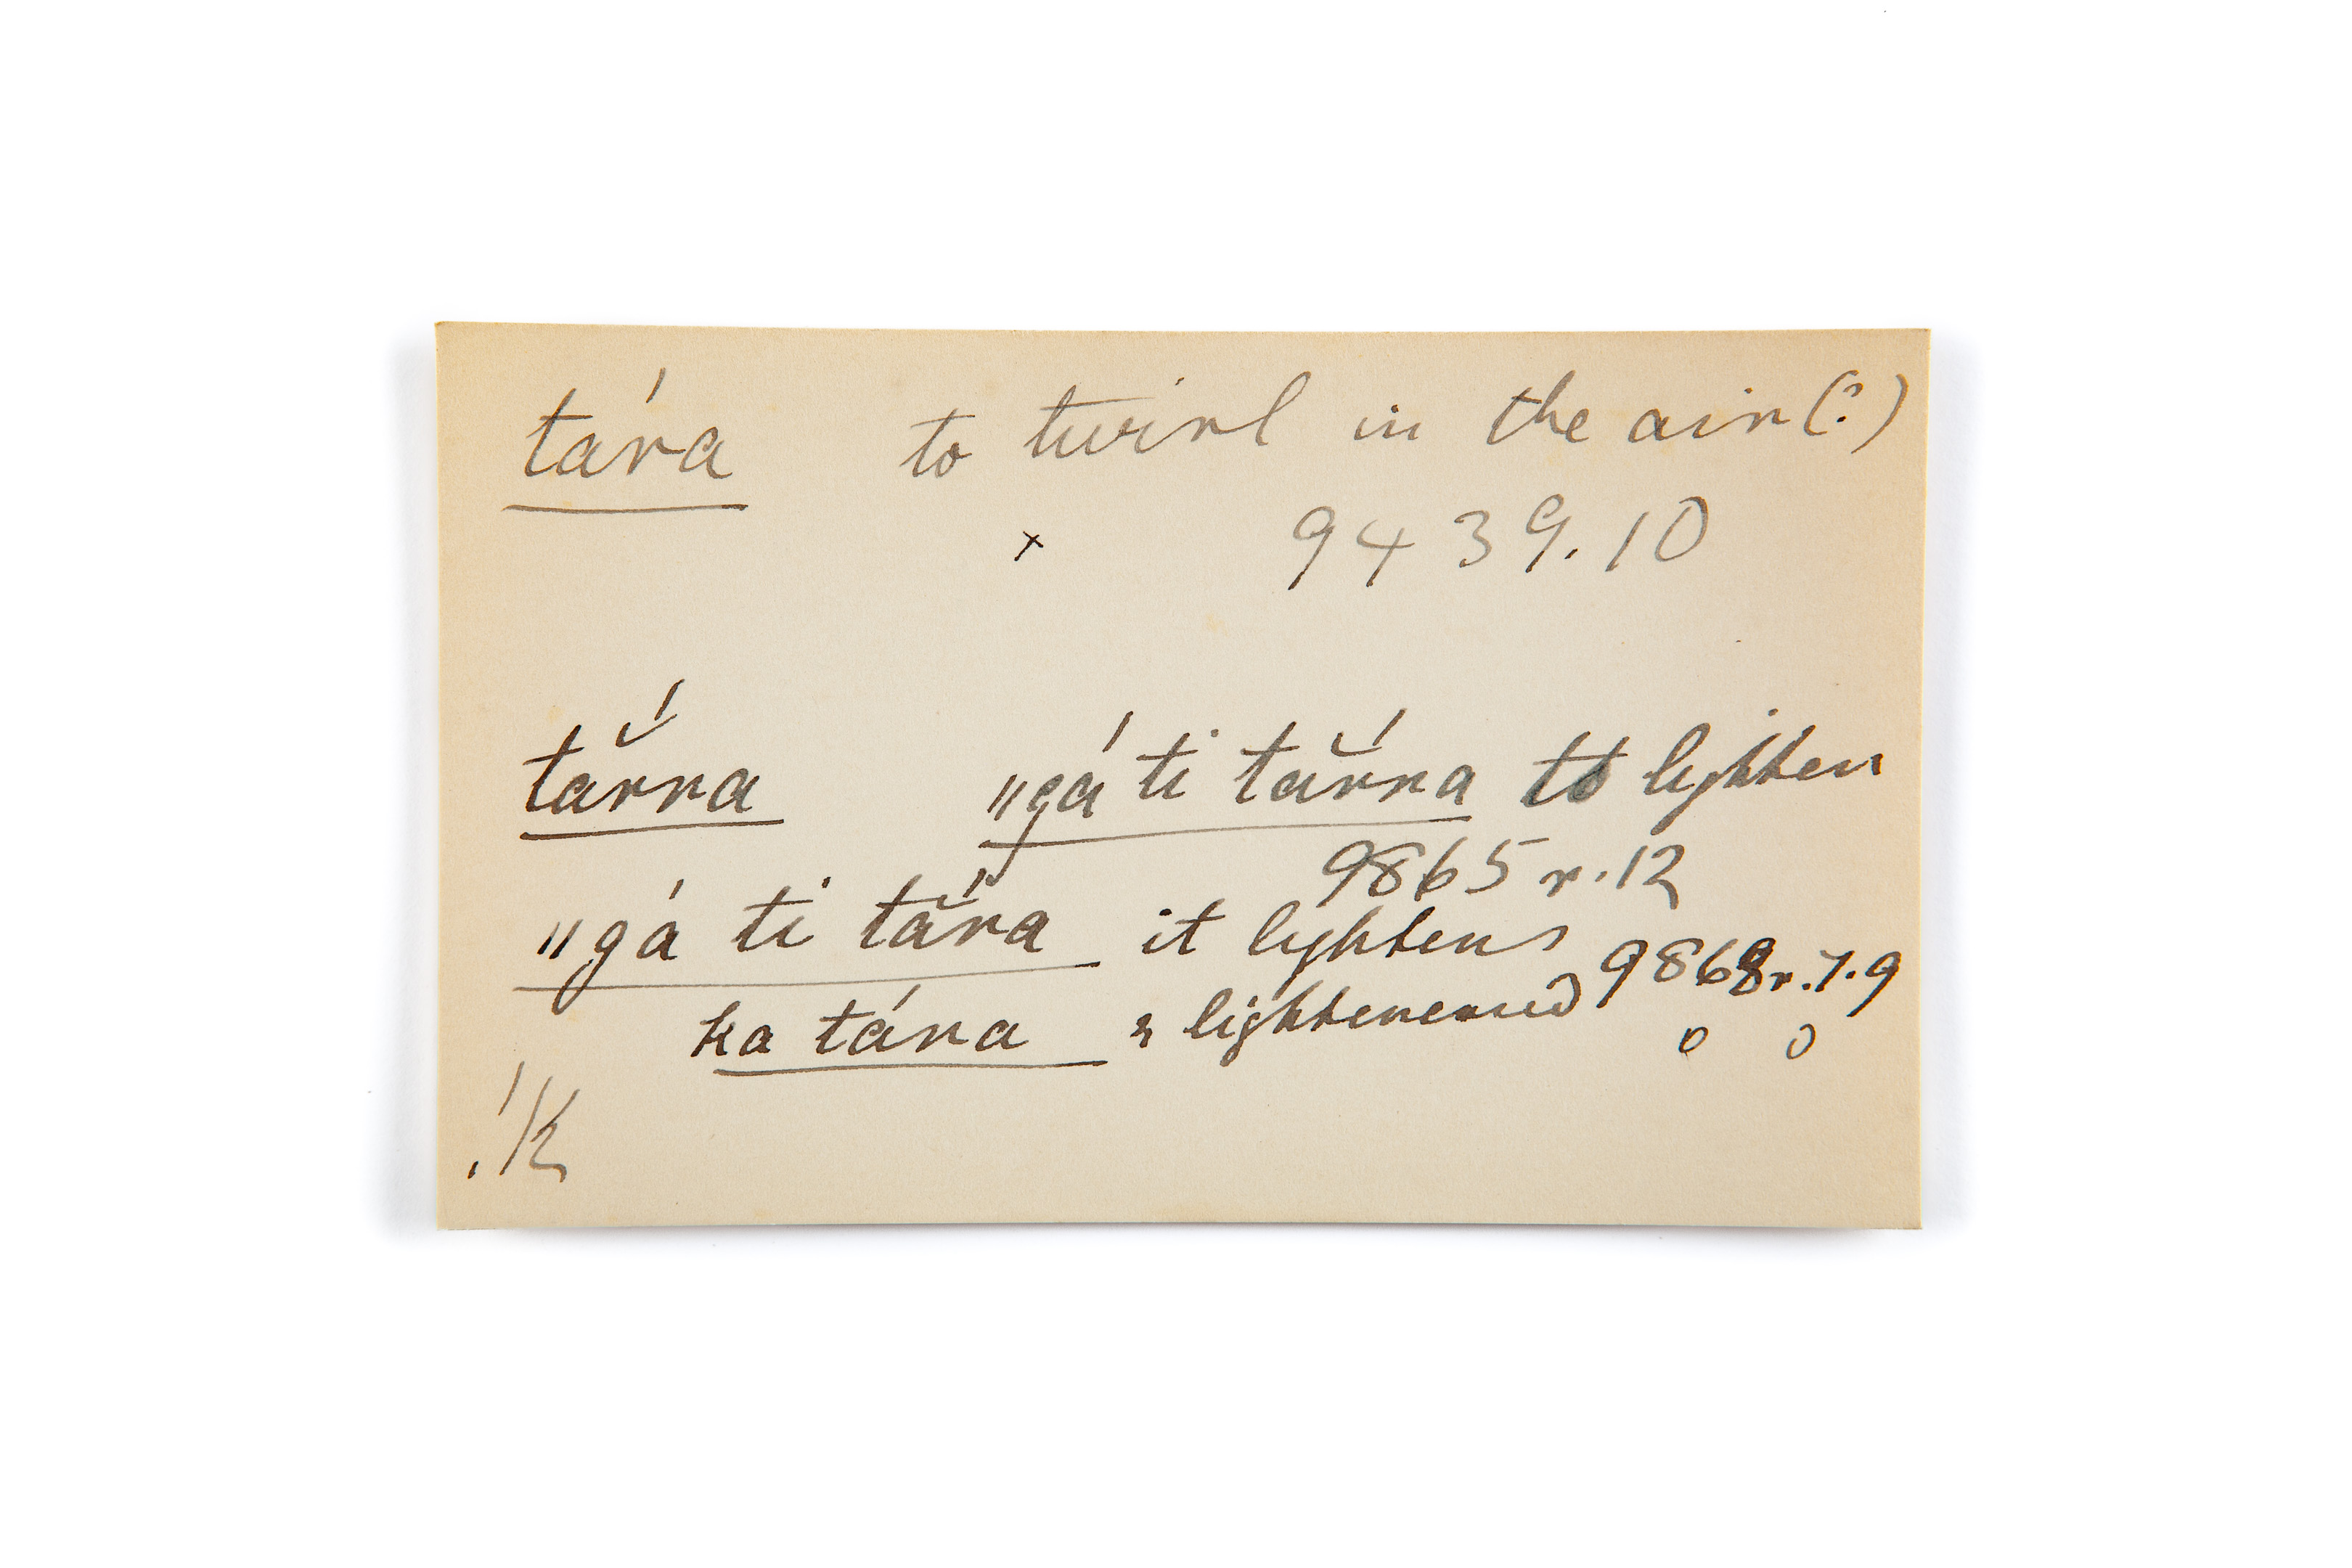 tára to twirl in the air (?)
x 9439.10
tắrra ‖gá ti tắrra to lighten
9865 r.12
‖gá ti tắra it lightens
9868 r.7.9
ka tára & lightened
0 0
!K